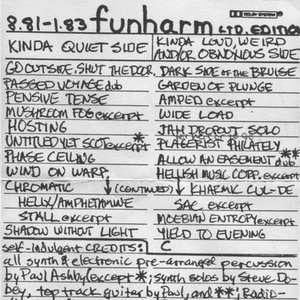 8.81-1.83 funharm LTD. EDITION
DOLBY SYSTEM
KINDA QUIET SIDE
KINDA LOUD, WEIRD AND/OR OBNOXIOUS SIDE
GO OUTSIDE, SHUT THE DOOR
DARK SIDE OF THE BRUISE
PASSED VOYAGE dub
GARDEN OF PLUNGE
PENSIVE TENSE
AMPED excerpt
MUSHROOM FOG excerpt
WIDE LOAD
HOSTING
JAH DROPOUT, SOLO
UNTITUDYLET SCOT excerpt*
PLAGERIST PHILATELY
PHASE CEILING
ALLOW AN EASEMENT dub**
WIND ON WARP
HELLISH MUSIC COPP. excerpt
CHROMATIC
(CONTINUED)
KHARMIC CUL-DE
HELIX/AMPHETAMINE
SAC excerpt
STALL excerpt
MOEBIAN ENTROPY excerpt
SHADOW WITHOUT LIGHT
YIELD TO EVENING
self-indulgent CREDITS:
C
all synth & electronic pre-arranged percussion
by Paul Ashby (except *; synth solos by Steve Do-
bey, top track guitar by Paul, and **; Radio-